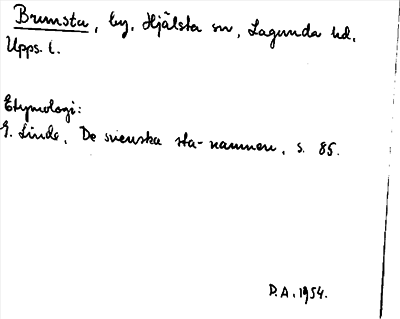 Brunsta, by, Hjälsta sn, Lagunda hd,
Upps. l.
Etymologi:
G. Linde, De svenska sta-namnen, s. 85.
D.A. 1954.